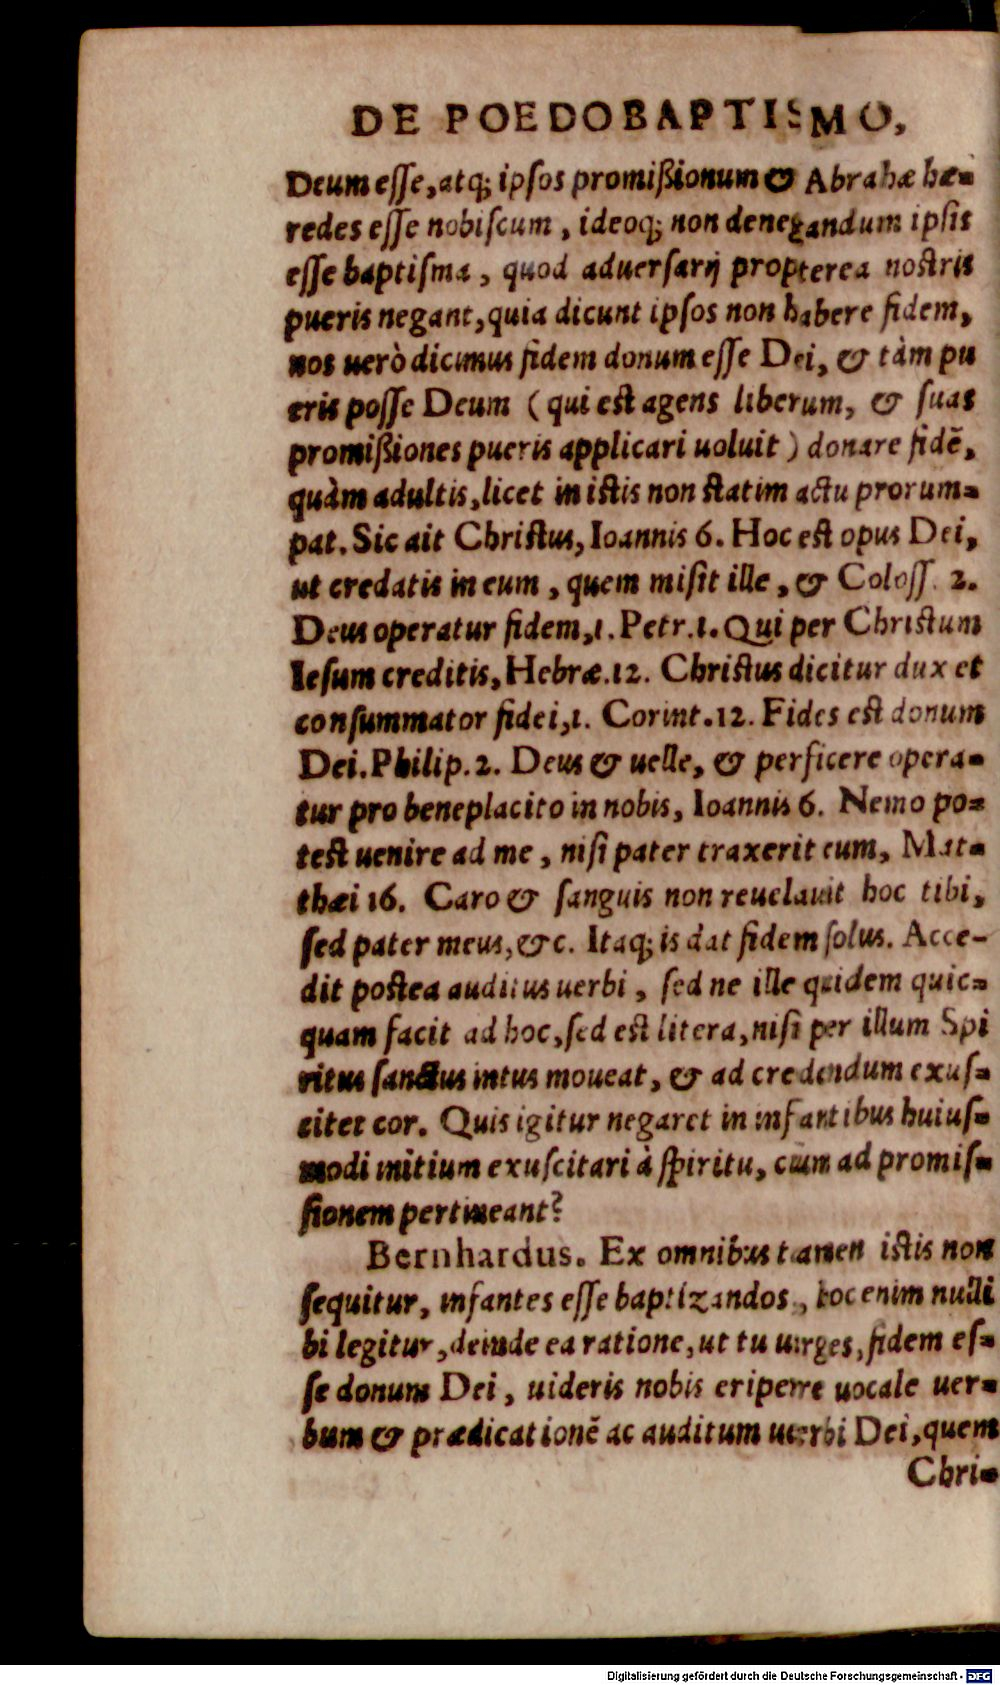 DE POEDOBAPTISMO,
Deum eſſe, atq; ipſos promißionum & Abrahæ hæ-
redes eſſe nobiſcum, ideoq; non denegandum ipſis
eſſe baptiſma, quod aduerſarij propterea noſtris
pueris negant, quia dicunt ipſos non habere fidem,
nos uerò dicimus fidem donum eſſe Dei, & tàm pu
eris poſſe Deum (qui eſt agens liberum, & ſuas
promißiones pueris applicari uoluit) donare fidē,
quàm adultis, licet in iſtis non ſtatim actu prorum-
pat. Sic ait Chriſtus, Ioannis 6. Hoc eſt opus Dei,
ut credatis in eum, quem miſit ille, & Coloſſ. 2.
Deus operatur fidem, 1. Petr. 1. Qui per Chriſtum
Ieſum creditis, Hebræ. 12. Chriſtus dicitur dux et
conſummator fidei, 1. Corint. 12. Fides eſt donum
Dei. Philip. 2. Deus & uelle, & perficere opera-
tur pro beneplacito in nobis, Ioannis 6. Nemo po-
teſt uenire ad me, niſi pater traxerit eum, Mat-
thæi 16. Caro & ſanguis non reuelauit hoc tibi,
ſed pater meus, &c. Itaq; is dat fidem ſolus. Acce-
dit poſtea auditus uerbi, ſed ne ille quidem quic-
quam facit ad hoc, ſed eſt litera, niſi per illum Spi
ritus ſanctus intus moueat, & ad credendum exuſ-
citet cor. Quis igitur negaret in infantibus huiuſ-
modi initium exuſcitari à ſpiritu, cum ad promiſ-
ſionem pertineant?
Bernhardus. Ex omnibus tamen iſtis non
ſequitur, infantes eſſe baptizandos, hoc enim nulli
bi legitur, deinde ea ratione, ut tu urges, fidem eſ-
ſe donum Dei, uideris nobis eripere uocale uer-
bum & prædicationē ac auditum uerbi Dei, quem
Chri-
Digitalisierung gefördert durch die Deutsche Forschungsgemeinschaft - DFG